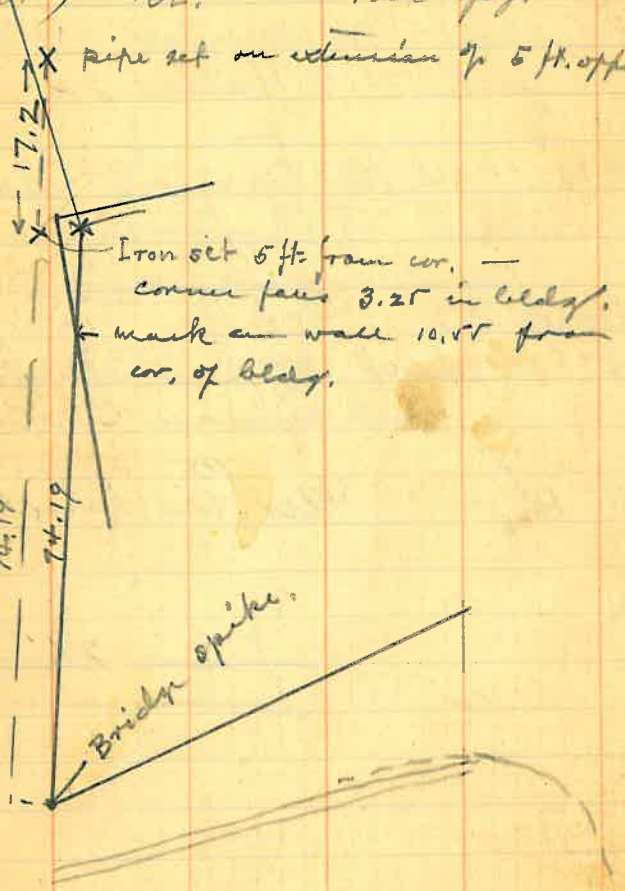 pipe set on extension of 5 ft. opp
17.2
Iron set 5 ft. from cor. —
corner falls 3.25 in bldg.
mark on wall 10.55 from
cor. of bldg.
74.19
74.19
Bridge spike.